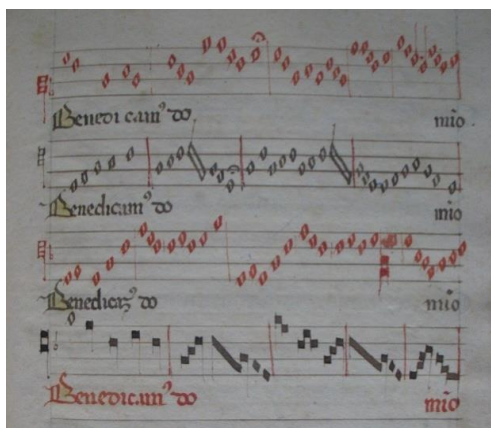 Benedicam⁹ do mio
Benedicam⁹ do mio
Benedicam⁹ do mio
Benedicam⁹ do mio